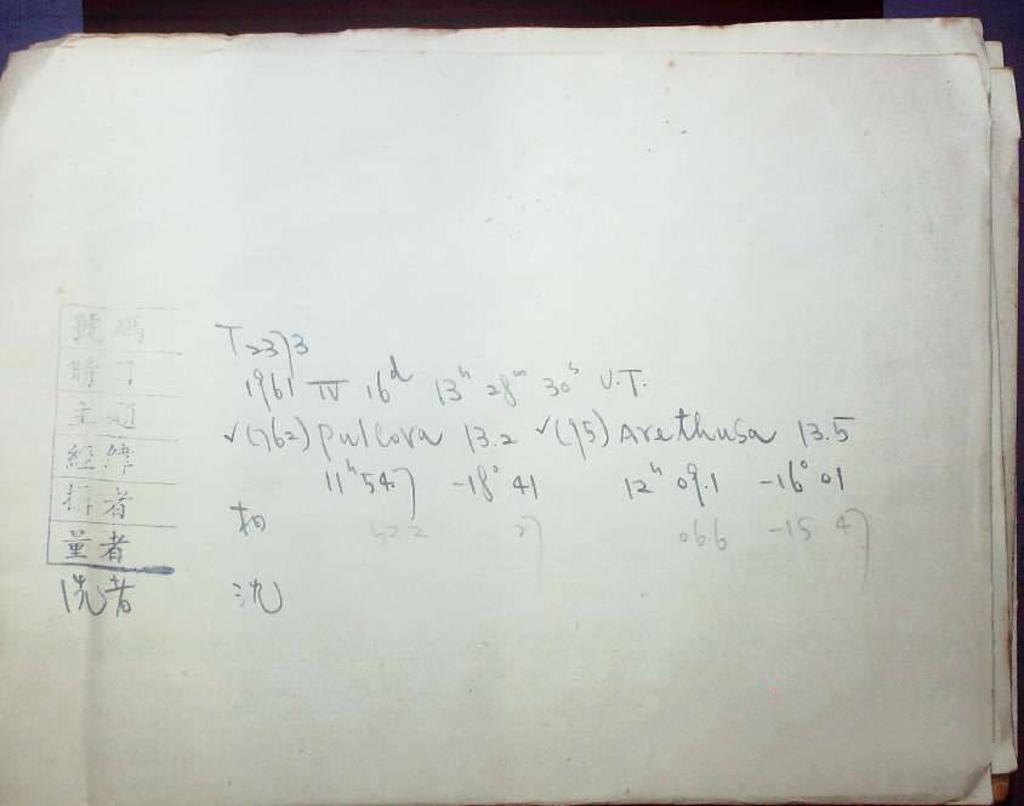 號碼 T2373
時 1961 IV 16ᵈ 13ʰ 28ᵐ 30ˢ U.T.
主題 ✓(762) Pulcova 13.2 ✓(75) Arethusa 13.5
經緯 11ʰ 54.7 -18° 41 12ʰ 09.1 -16° 01
者 52.2 27 06.6 -15 47
量者
洗者 沈